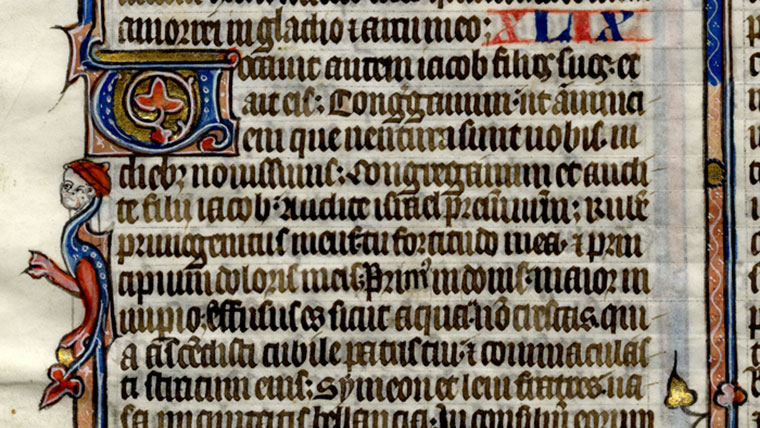 amorrei in gladio ⁊ arcu meo; XLIX
Vocauit autem iacob filios suos: et
ait eis: Congregamini. ut ānunci
em que uentura sunt uobis. in
dieb; nouissimis: Congregamini et audi
te filii iacob. Audite israel prēm urm̄; Rubē
primogenitus meus. tu fortitudo mea. ⁊ prin
cipium doloris mei. in donis. maior in
imperio. Effusus es sicut aqua. nō crescas. qui
a ascēdisti cubile patris tui. ⁊ commaculas
ti stratum eius: Symeon et leui fratres. ua
sa iniquitatis bellancia. In consiliū eorum